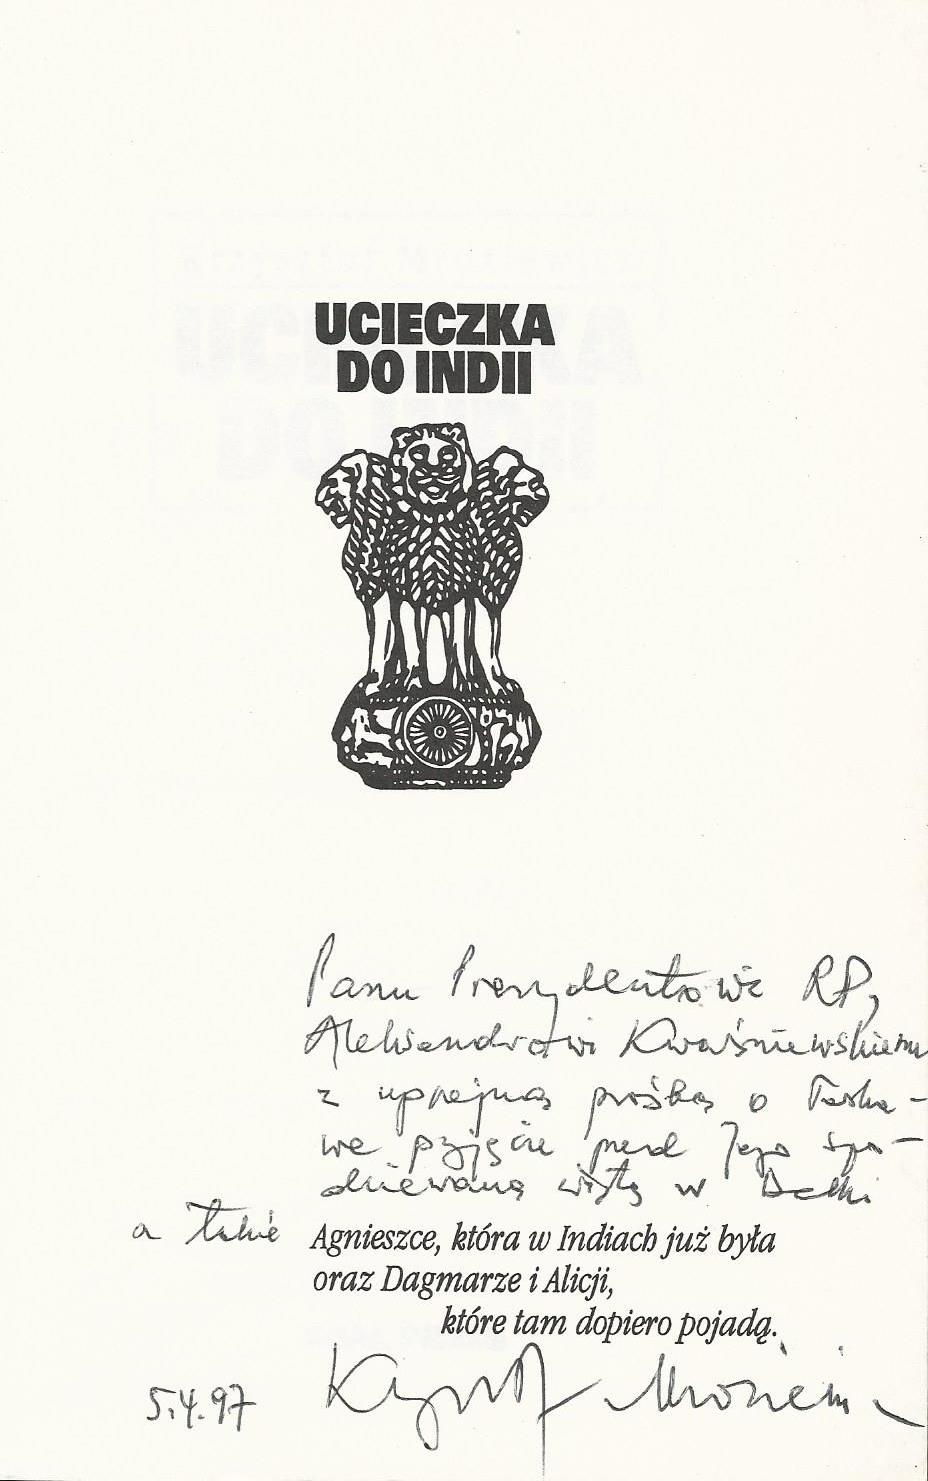 UCIECZKA
DO INDII
Panu Prezydentowi RP,
Aleksandrowi Kwaśniewskiemu
z uprzejmą prośbą o łaska-
we przyjęcie przed Jego spo-
dziewaną wizytą w Delhi
a także Agnieszce, która w Indiach już była
oraz Dagmarze i Alicji,
które tam dopiero pojadą.
5.4.97 Krzysztof